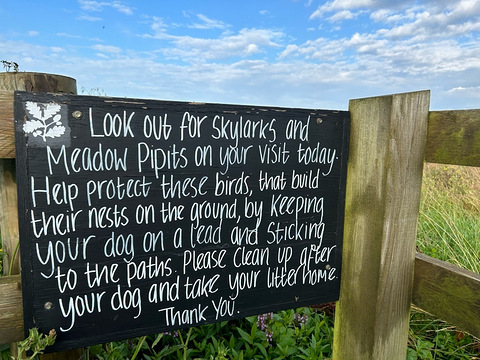 Look out for Skylarks and
Meadow Pipits on your visit today.
Help protect these birds, that build
their nests on the ground, by keeping
your dog on a lead and sticking
to the paths. Please clean up after
your dog and take your litter home.
Thank You.